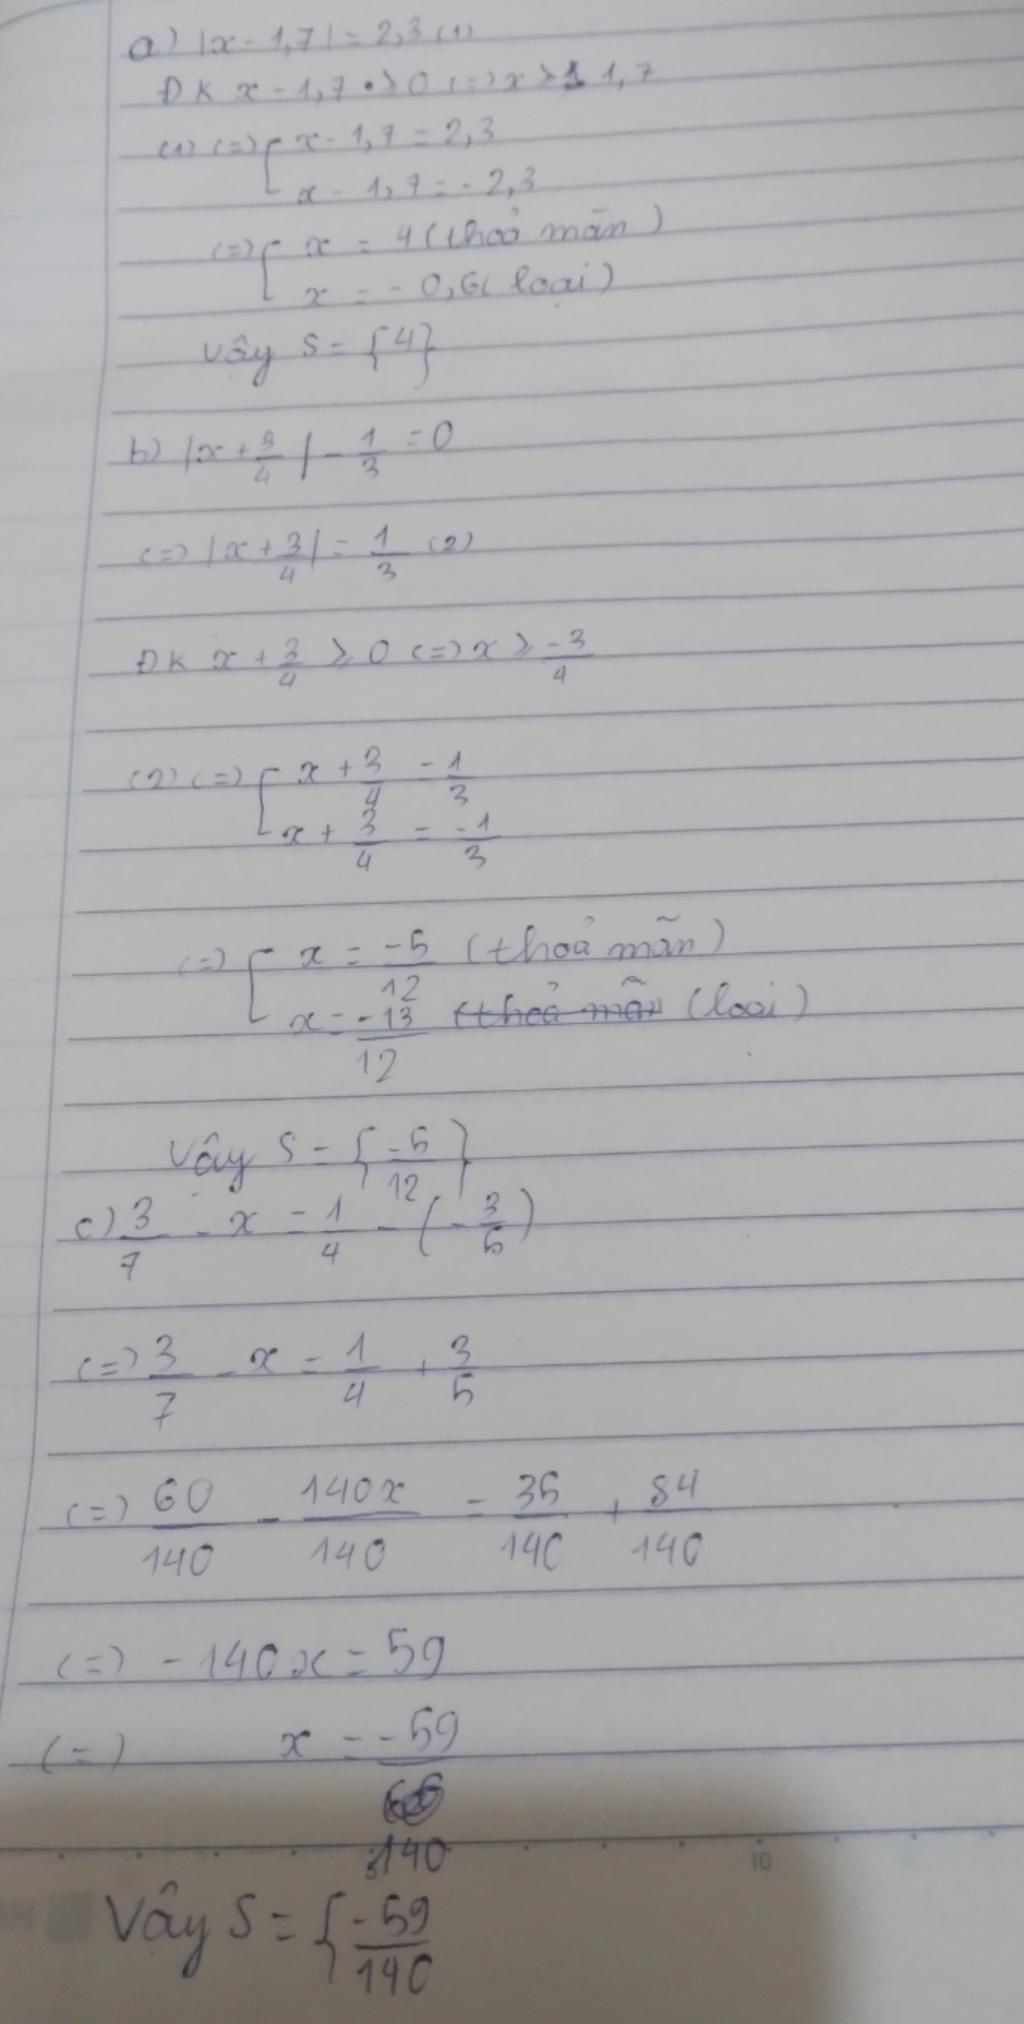 a) |x - 1,7| = 2,3 (1)
ĐK x - 1,7 ≥ 0 (=) x ≥ 1,7
(1) (=) [ x - 1,7 = 2,3
x - 1,7 = - 2,3
(=) [ x = 4 (thoả mãn)
x = - 0,6 (loại)
Vậy S = {4}
b) |x + 3/4| - 1/3 = 0
(=) |x + 3/4| = 1/3 (2)
ĐK x + 3/4 ≥ 0 (=) x ≥ -3/4
(2) (=) [ x + 3/4 = 1/3
x + 3/4 = -1/3
(=) [ x = -5/12 (thoả mãn)
x = -13/12 (thoả mãn (loại)
Vậy S = {-5/12}
c) 3/7 - x = 1/4 - (-3/5)
(=) 3/7 - x = 1/4 + 3/5
(=) 60/140 - 140x/140 = 35/140 + 84/140
(=) - 140x = 59
(=) x = -59/140
10
Vậy S = {-59/140